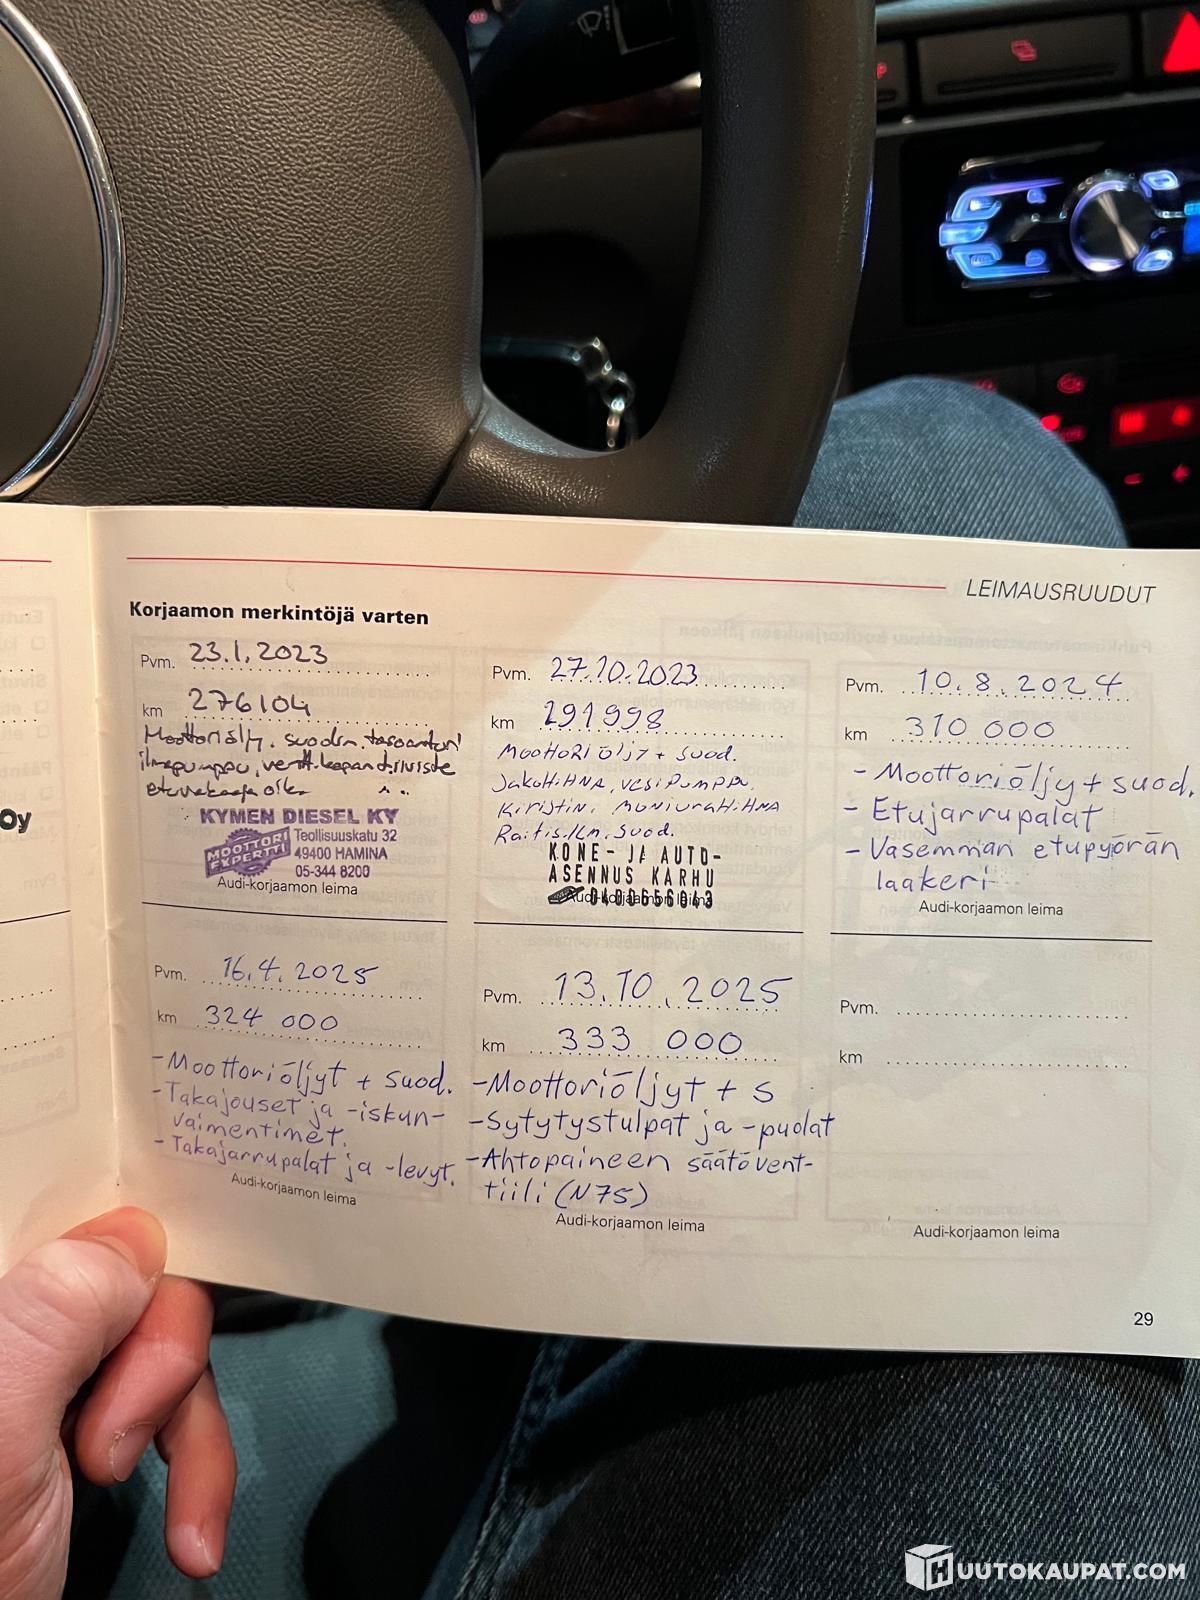 LEIMAUSRUUDUT
Korjaamon merkintöjä varten
Pvm. 23.1.2023
km 276104
Moottoriöljy. suodin.
ilmapumppu,
KYMEN DIESEL KY
MOOTTORI EXPERTTI
Teollisuuskatu 32
49400 HAMINA
05-344 8200
Audi-korjaamon leima
Pvm. 27.10.2023
km 291998
MOOTTORI ÖLJY + SUOD.
JAKOHIHNA, VESIPUMPPU,
KIRISTIN, MONIURAHIHNA
RAITIS.ILM. SUOD.
KONE- JA AUTO-
ASENNUS KARHU
Audi-korjaamon leima
Pvm. 10.8.2024
km 310 000
- Moottoriöljy + suod.
- Etujarrupalat
- Vasemman etupyörän
laakeri
Audi-korjaamon leima
Pvm. 16.4.2025
km 324 000
- Moottoriöljyt + suod.
- Takajouset ja -iskun-
vaimentimet.
- Takajarrupalat ja -levyt.
Audi-korjaamon leima
Pvm. 13.10.2025
km 333 000
- Moottoriöljyt + s
- Sytytystulpat ja -puolat
- Ahtopaineen säätövent-
tiili (N75)
Audi-korjaamon leima
Pvm.
km
Audi-korjaamon leima
29
Oy
HUUTOKAUPAT.COM